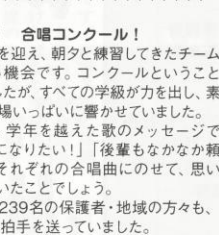 合唱コンクール!
を迎え、朝夕と練習してきたチーム
機会です。コンクールということ
たが、すべての学級が力を出し、素
場いっぱいに響かせていました。
学年を越えた歌のメッセージで
になりたい!」「後輩もなかなか頼
それぞれの合唱曲にのせて、思い
いたことでしょう。
239名の保護者・地域の方々も、
拍手を送っていました。